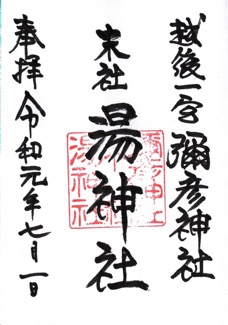 越後一宮 彌彦神社
末社
湯神社
奉拝 令和元年七月一日
湯神社